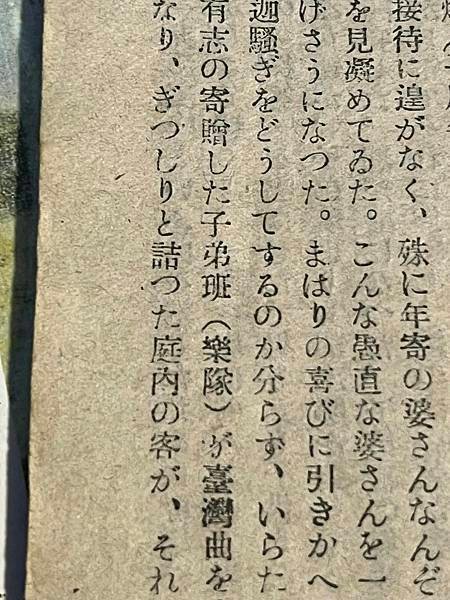 接待に遑がなく、殊に年寄の婆さんなんぞ
を見凝めてゐた。こんな愚直な婆さんを一
げさうになつた。まはりの喜びに引きかへ
迴騷ぎをどうしてするのか分らず、いらた
有志の寄贈した子弟班（樂隊）が臺灣曲を
なり、ぎつしりと詰つた庭內の客が、それ